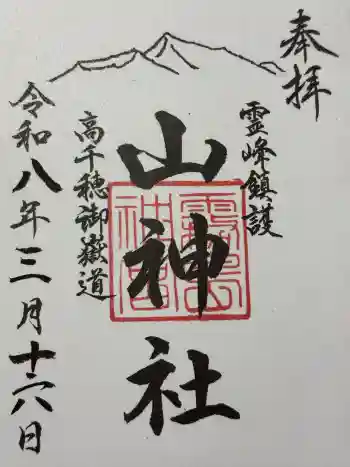 奉拝
霊峰鎮護
山神社
高千穂御嶽道
令和八年三月十六日
霧島
神宮